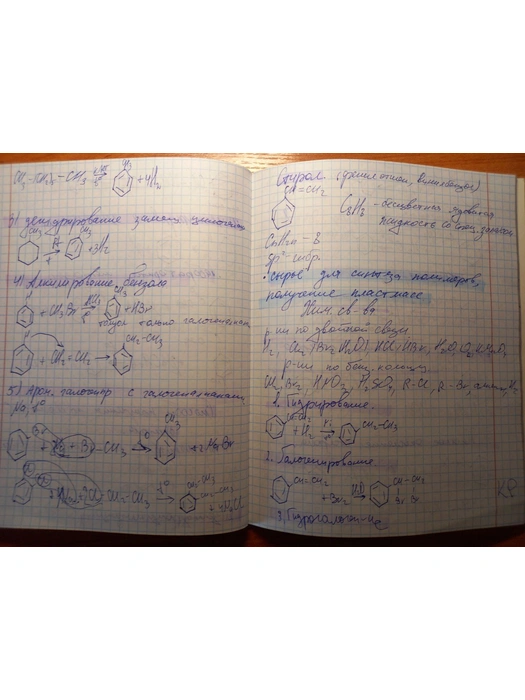 CH3-(CH2)4-CH3
CH3
+4H2
3) дегидрирование замещ. циклогекс
CH3
CH3
+3H2
4) Алкилирование бензола
+ CH3Br
CH3
+HBr
только галогеналкан
+ CH2=CH2 →
CH2-CH3
5) Аром. галогенпр с галогеналканами
Na, t°
+ Br-CH3
CH3
+2NaBr
CH2-CH3
t°
Стирол (фенилэтилен, винилбензол)
CH=CH2
C8H8 - бесцветная ядовитая
жидкость со спец. запахом
CnH2n-8
Sp² гибр.
• сырьё для синтеза полимеров,
получение пластмасс.
Хим. св-ва
р-ии по двойной связи
H2, Cl2, Br2 (H2O), HCl, HBr, H2O
р-ии по бенз. кольцу
Cl2, Br2, HNO3, H2SO4, R-Cl, R-Br, H2
1. Гидрирование.
CH=CH2
+ H2 →
CH2-CH3
2. Галогенирование
CH=CH2
+Br2
H2O
CH-CH2
Br Br
3. Гидрогалоген-ие